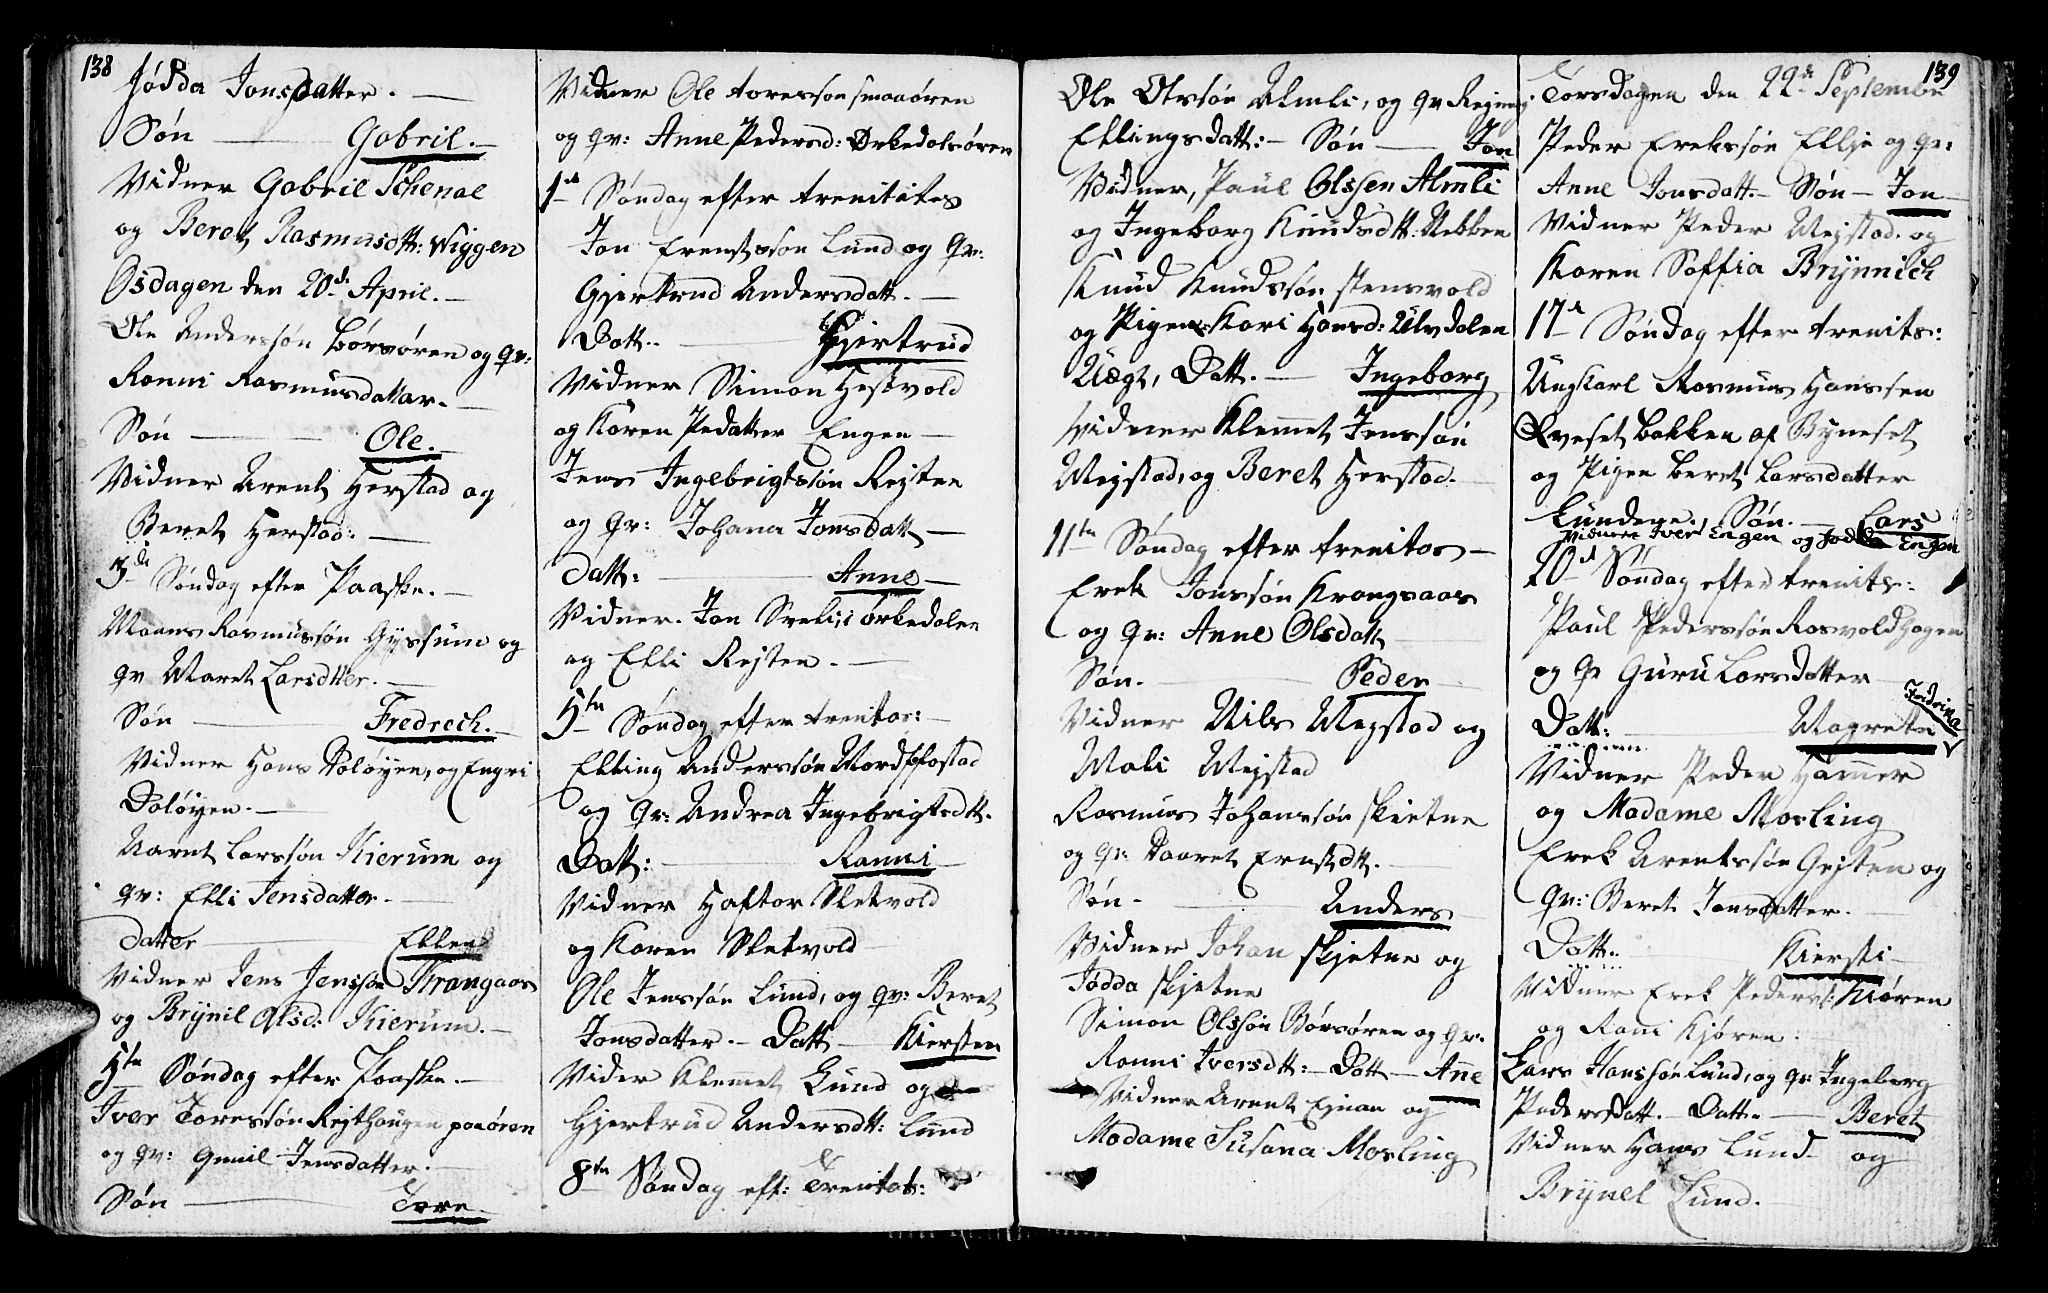 138
Jødda Jonsdatter.
Søn Gabril.
Vidner Gabril Schenal
og Beret Rasmusdtt: Wiggen
Osdagen den 20de April.
Ole Anderssøn Børsøren og qv:
Ronni Rasmusdattar.
Søn Ole.
Vidner Arent Herstad og
Beret Herstad:
3die Søndag efter Paaske.
Moans Rasmussøn Gyssum og
qv Maret Larsdtter.
Søn Fredrech.
Vidner Hans Doløyen, og Engri
Doløyen.
Aarnt Larssøn Kierum og
qv: Elli Jensdatter
datter Ellen
Vidner Jens Jenssøn Krangaas
og Brynil Olsd: Kierum.
5te Søndag efter Paaske.
Iver Toressøn Rejthaugen paaøren
og qv: Gunil Jensdatter.
Søn Tore.
Vidner Ole Toressøn smaaøren
og qv: Anne Pedersd: Orkedalsøren
1ste Søndag efter trenitites
Jon Erenstsson Lund og qv:
Gjertrud Andersdatt.
Datt. Gjertrud
Vidner Simon Hestvold
og Karen Pedatter Engen
Jens Ingebrigtssøn Rejten
og qv: Johana Jonsdatt
datt: Anne
Vidner. Jon Sreli, i Orkedalen
og Elli Rejten.
5te Søndag efter trenitas:
Elling Anderssøn Nordtfostad
og qv: Andrea Ingebrigtsdtt.
Datt: Ranni
Vidner Haftor Sletvold
og Karen Sletvold
Ole Jenssøn Lund, og qv: Beret
Jonsdatter. Datt Kiersten
Vider Klemet Lund og
Gjertrud Andersdtt: Lund
8te Søndag eft: Trenitat:
Ole Olssøn Almli, og qv Regneng
Ellingsdatt: Søn Jon
Vidner, Paul Olssen Almli
og Ingeborg Knudsdtt: Nebben
Knud Knudssøn stensvold
og Pigen Kari Hansd: Ulvdalen
Uægt, Datt. Ingeborg
Vidner Klemmet Jenssøn
Mejstad, og Beret Herstad.
11te Søndag efter trenitas
Erek Jonssøn Krangsaas
og qv: Anne Olsdatt
Søn. Peder
Vidner Nils Megstad og
Mali Mejstad
Rasmus Johanssøn skietne
og qv: Maaret Ernstdtt.
Søn Anders
Vidner Johan skjetne og
Jødda skjetne
Simon Olssøn Børsøren og qv.
Ronni Iversdtt: Datt Ane
Vidner Arent Ejnan og
Madame Susana Mosling
139
Torsdagen den 22de September
Peder Erekssøn Ellje og qv:
Anne Jonsdatt. Søn Jon
Vidner Peder Mejstad. og
Karen Soffia Brynnich
17de Søndag efter trenits:
Ungkarl Rasmus Hanssen
Qveset bakken af Byneset
og Pigen Beret Larsdatter
Lundene, Søn. Lars
Vidner Iver Engen og Jødda Engen
20de Søndag efter trenits:
Paul Pederssøn Rosvoldhagen
og Qv Guru Larsdatter
Fredrika
Datt: Magreta
Vidner Peder Hammer
og Madame Mosling
Erek Arentssøn Gejsten og
qv: Beret Jonsdatter.
Datt. Kiersti
Vidner Erek Peders: Kiøren
og Rani Kjøren.
Lars Hanssøn Lund, og qv Ingeborg
Pedersdatt. Datt. Beret
Vidner Hans Lund og
Brynel Lund.